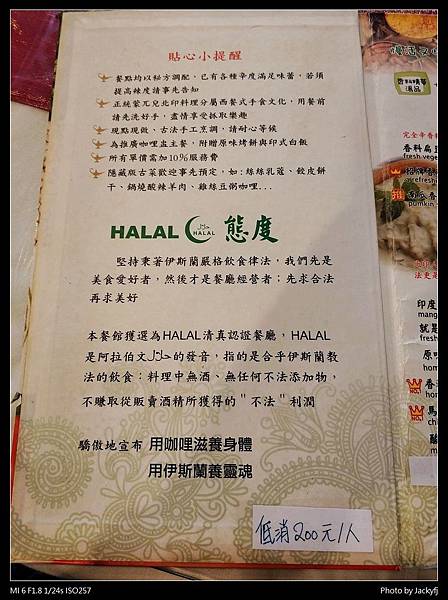 貼心小提醒
餐點均以秘方調配，已有各種辛度滿足味蕾，若須
提高辣度請事先告知
正統蒙兀兒北印料理分屬西餐式手食文化，用餐前
請先洗好手，盡情享受抓取樂趣
現點現做、古法手工烹調，請耐心等候
為推廣咖哩盅主餐，附贈原味烤餅與印式白飯
所有單價需加10%服務費
隱藏版古菜歡迎事先預定，如：綠綠乳蔻、餃皮餅
干、鍋燒酸辣羊肉、雞絲豆粥咖哩...
HALAL HALAL 態度
堅持秉著伊斯蘭嚴格飲食律法，我們先是
美食愛好者，然後才是餐廳經營者；先求合法
再求美好
本餐館獲選為HALAL清真認證餐廳，HALAL
是阿拉伯文حلال的發音，指的是合乎伊斯蘭教
法的飲食；料理中無酒、無任何不法添加物，
不賺取從販賣酒精所獲得的＂不法＂利潤
驕傲地宣布 用咖哩滋養身體
用伊斯蘭養靈魂
低消200元/人
香料精華
湯品
完全辛香料
香料扁豆
fresh vege
招牌香
a refreshi
推
pumkin
印度
mang
就是
fresh
原味
hom
香
hom
馬
chi
MI 6 F1.8 1/24s ISO257
Photo by Jackyfj